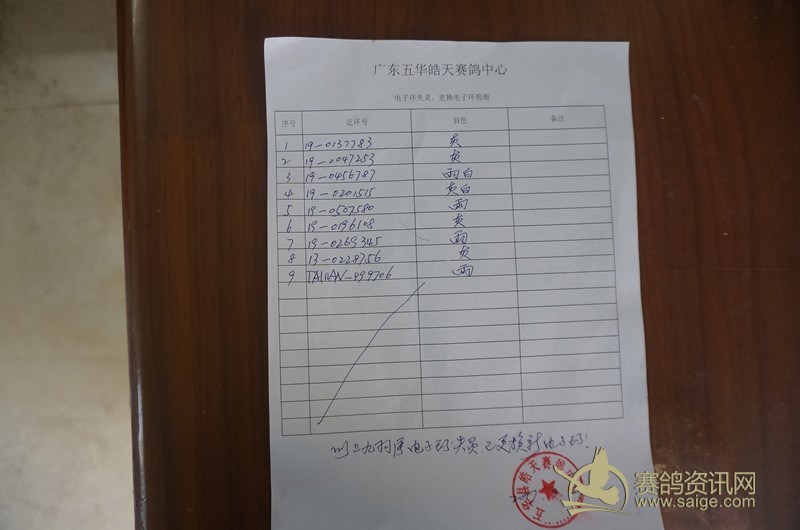 广东五华皓天赛鸽中心
电子环失灵、更换电子环明细
序号 足环号 羽色 备注
1 19-0137783 灰
2 19-0047253 灰
3 19-0456787 雨白
4 19-0201515 灰白
5 19-0507580 雨
6 19-0196108 灰
7 19-0269345 雨
8 13-0228756 灰
9 TAIWAN-899706 雨
以上九羽 电子环失灵,已更换新电子环!
五华县皓天赛鸽
赛鸽资讯网
www.saige.com